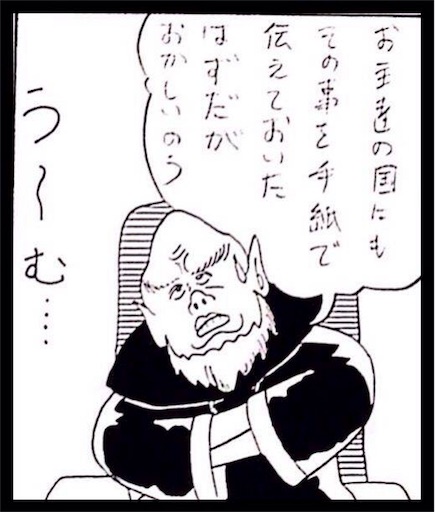 お主達の国にも
その事を手紙で
伝えておいた
はずだが
おかしいのう
う〜む……